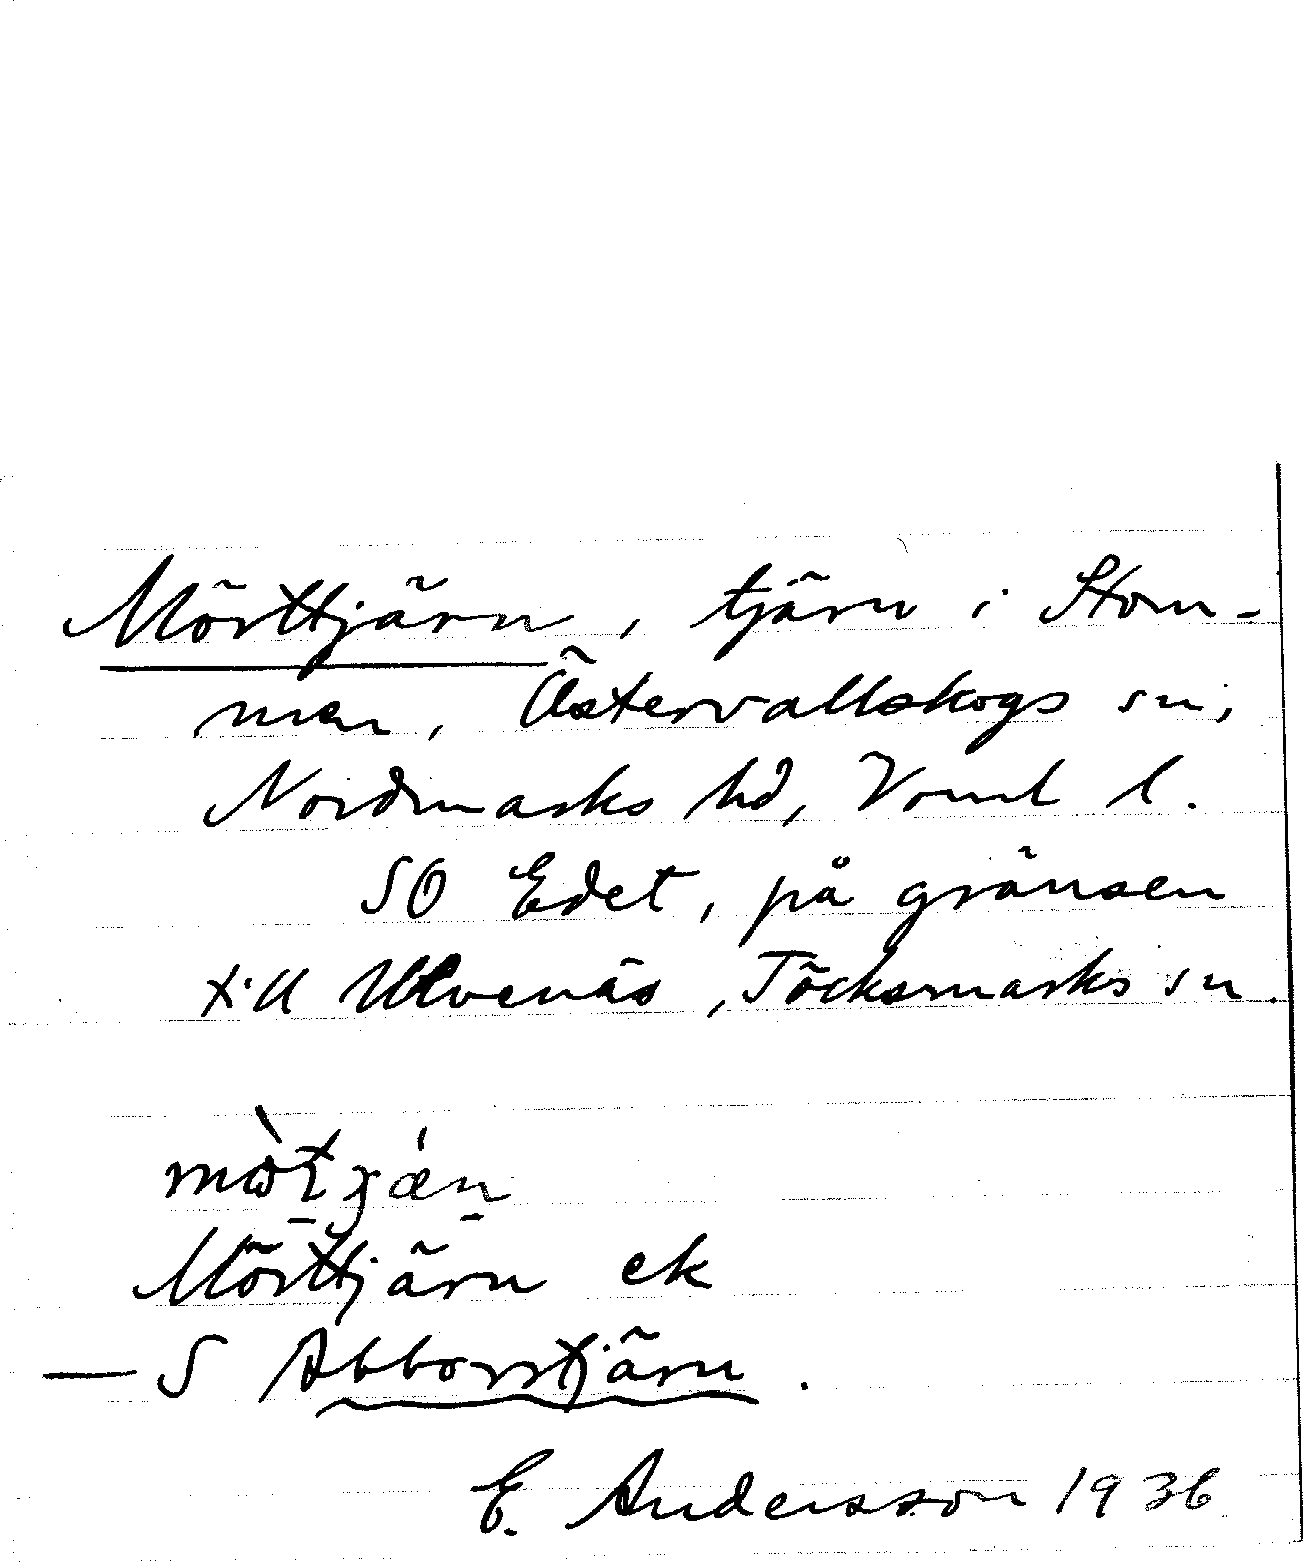 Mörttjärn, tjärn i Stom-
men, Östervallskogs sn,
Nordmarks hd, Vrml l.
SO Edet, på gränsen
till Ulvenäs, Töcksmarks sn.
Mörttjärn ek
— S Abborrtjärn.
E. Andersson 1936